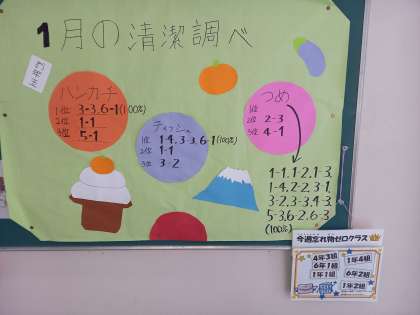 1月の清潔調べ
ハンカチ
1位 3-3,6-1(100%)
2位 1-1
3位 5-1
ティッシュ
1位 1-4,3-3,6-1(100%)
2位 1-1
3位 3-2
つめ
1位
2位 2-3
3位 4-1
1-1,1-2,1-3,
1-4,2-2,2-3,1,
3-2,3-3,4-3,
5-3,6-2,6-3
(100%)
今週忘れ物ゼロクラス
4年3組
1年4組
6年1組
6年2組
1年1組
1年2組